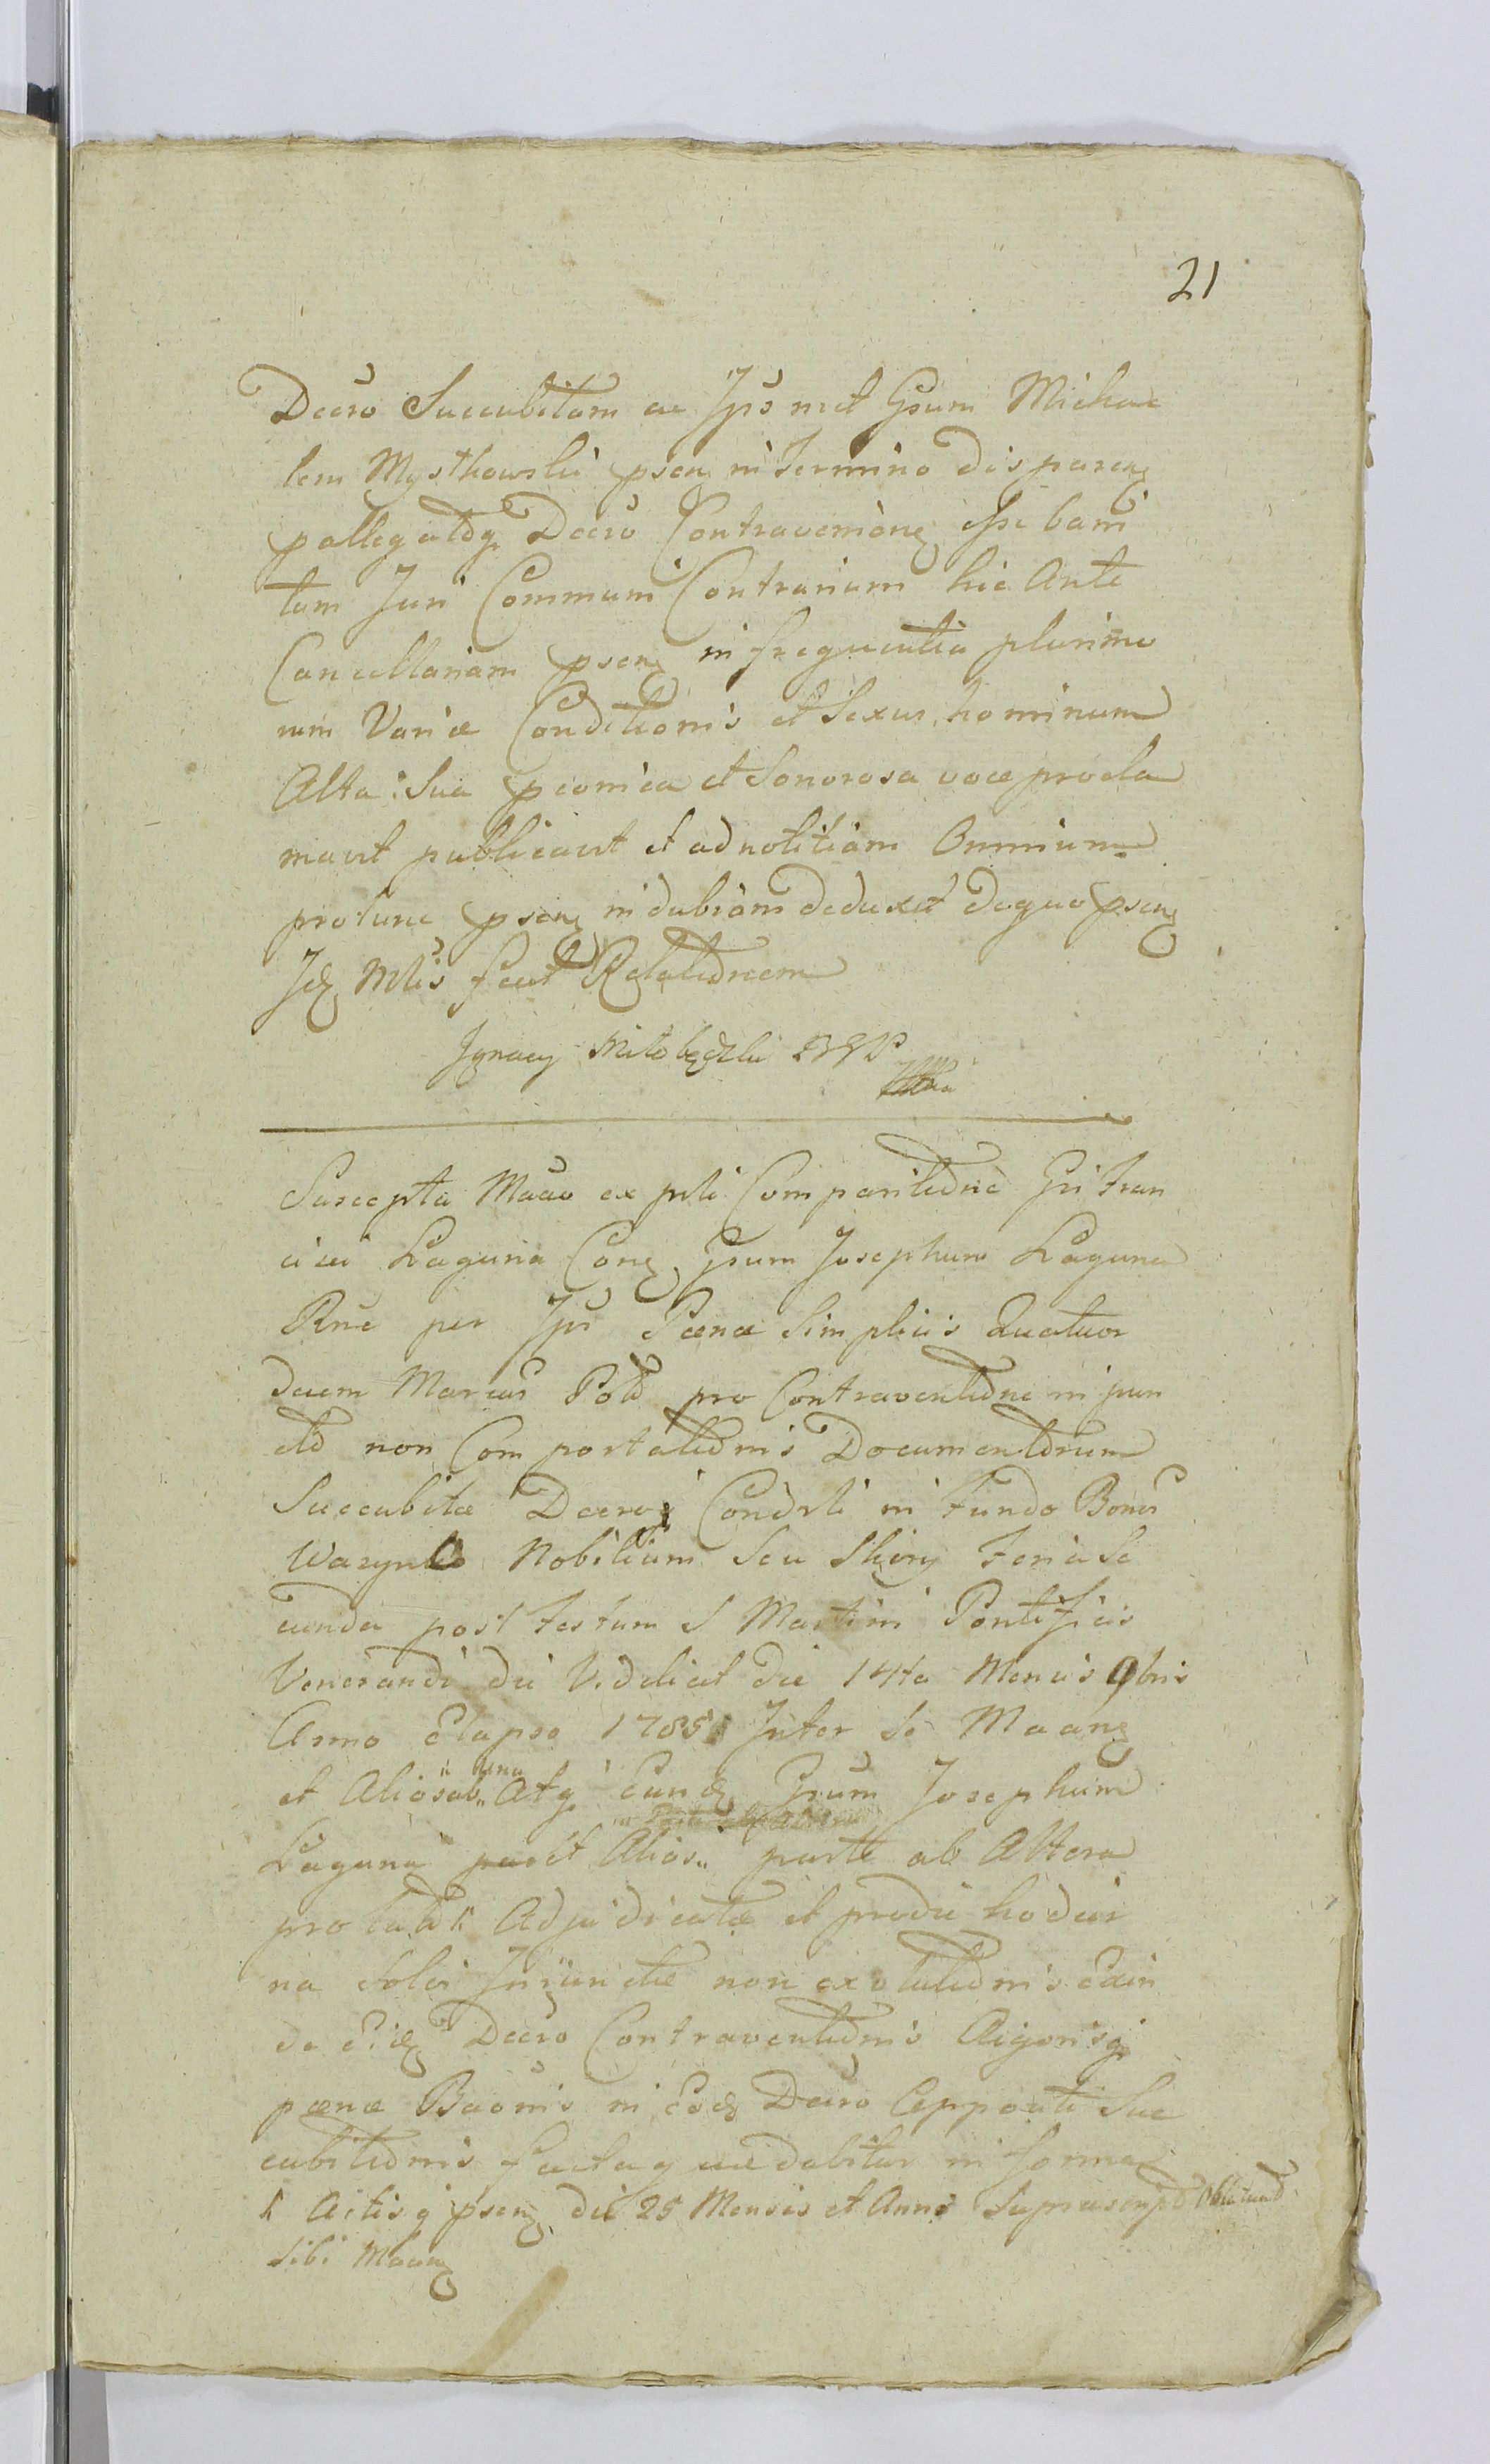 21
Decro Succubitam ac Jps met Gsum Michae
lem Mystkowski psen in Termino disparen
pallegatoq Decro Contravenien esse bani
tum Juri Communi Contrarium hic Ante
Cancellariam psen in frequentia plurimo
rum Variæ Conditionis et Sexus hominum
Alta Sua pconica et Sonorosa voce procla
mavit publicavit et ad notitiam Omnium
protunc psen indubiam deduxit de quo psen
Jd Mlis fecit Relationem
Ignacy Miłobędzki
Suscepta ex pli Comparitione Gsi Fran
cisci Łaguna Con Gsum Josephum Łaguna
Rne per Jps Pænæ Simplicis Quatuor
decem Marcas Pol pro Contraventione in pun
cto non Comportationis Documentorum
Succubitæ Decro Condsli in Fundo Bonor
Nobilium seu Skory Feria Se
cunda post Festum S Martini Pontificis
Venerandi die Videlicet die 14ta Mensis 9bris
Anno Elapso 1785 Inter Se Maan
et Alios ab una Atq Eund Gsum Josephum
Łaguna et Alios parte ab Altera
prolato Adjudicatæ et pro die hodier
na Solvi Injunctæ non exolutionis Exin
de Eid Decro Contraventionis Rigorisq
pænæ Baonis in Eod Decro Appositi Suc
cubitionis facta quæ dabitur in forma
Actisq psen die 25 Mensis et Anni Suprascripto
Sibi Maan